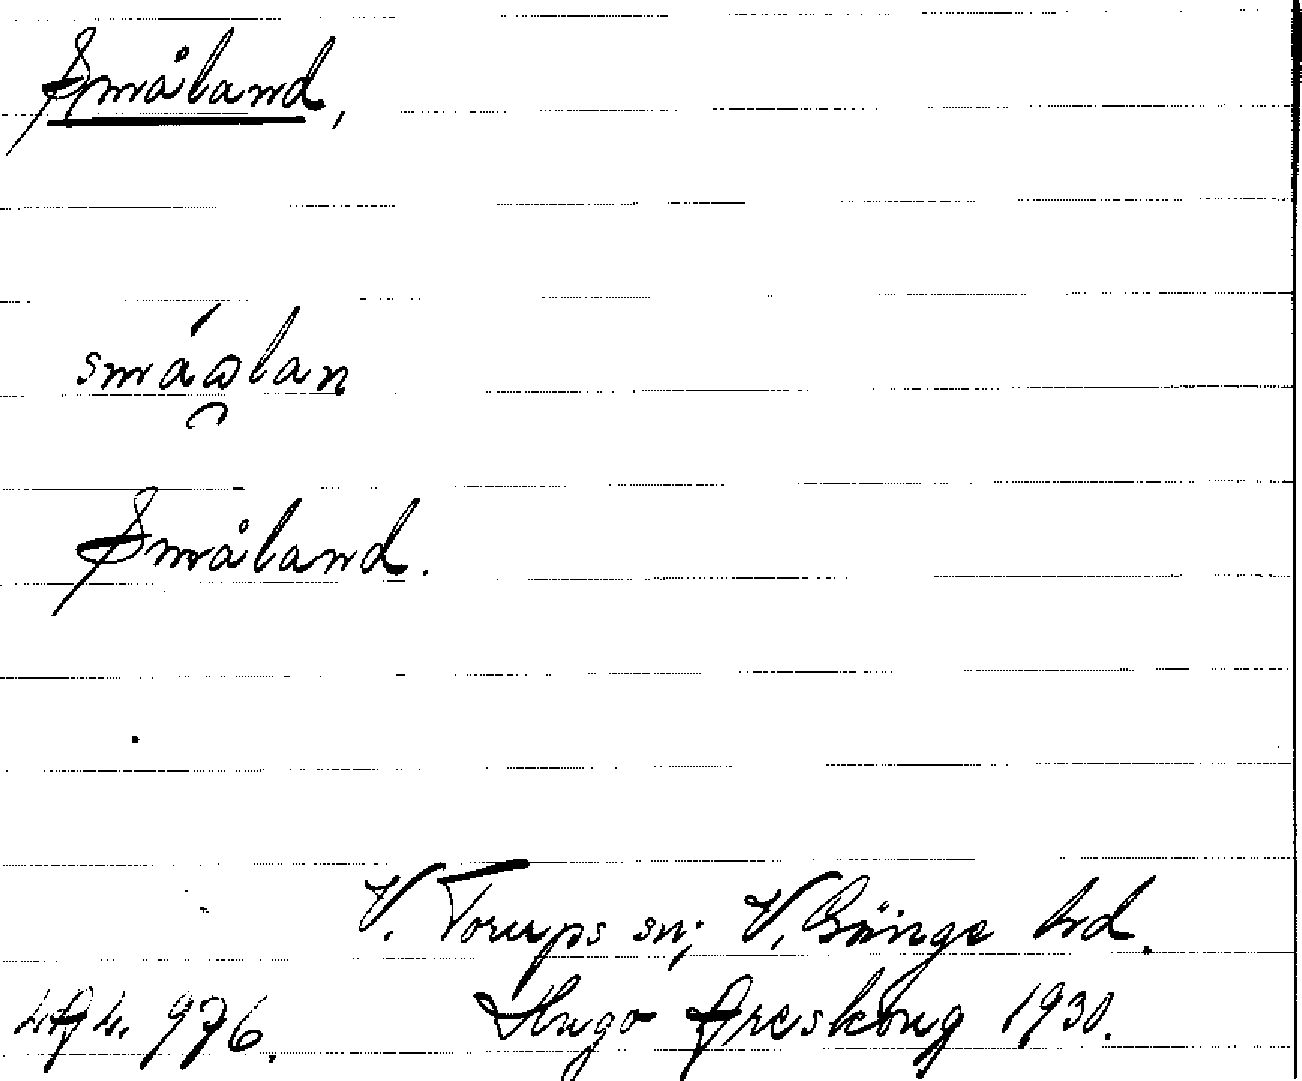 Småland,
småɷlan
Småland.
V. Torups sn; V. Göinge hd.
976. Hugo Areskoug 1930.